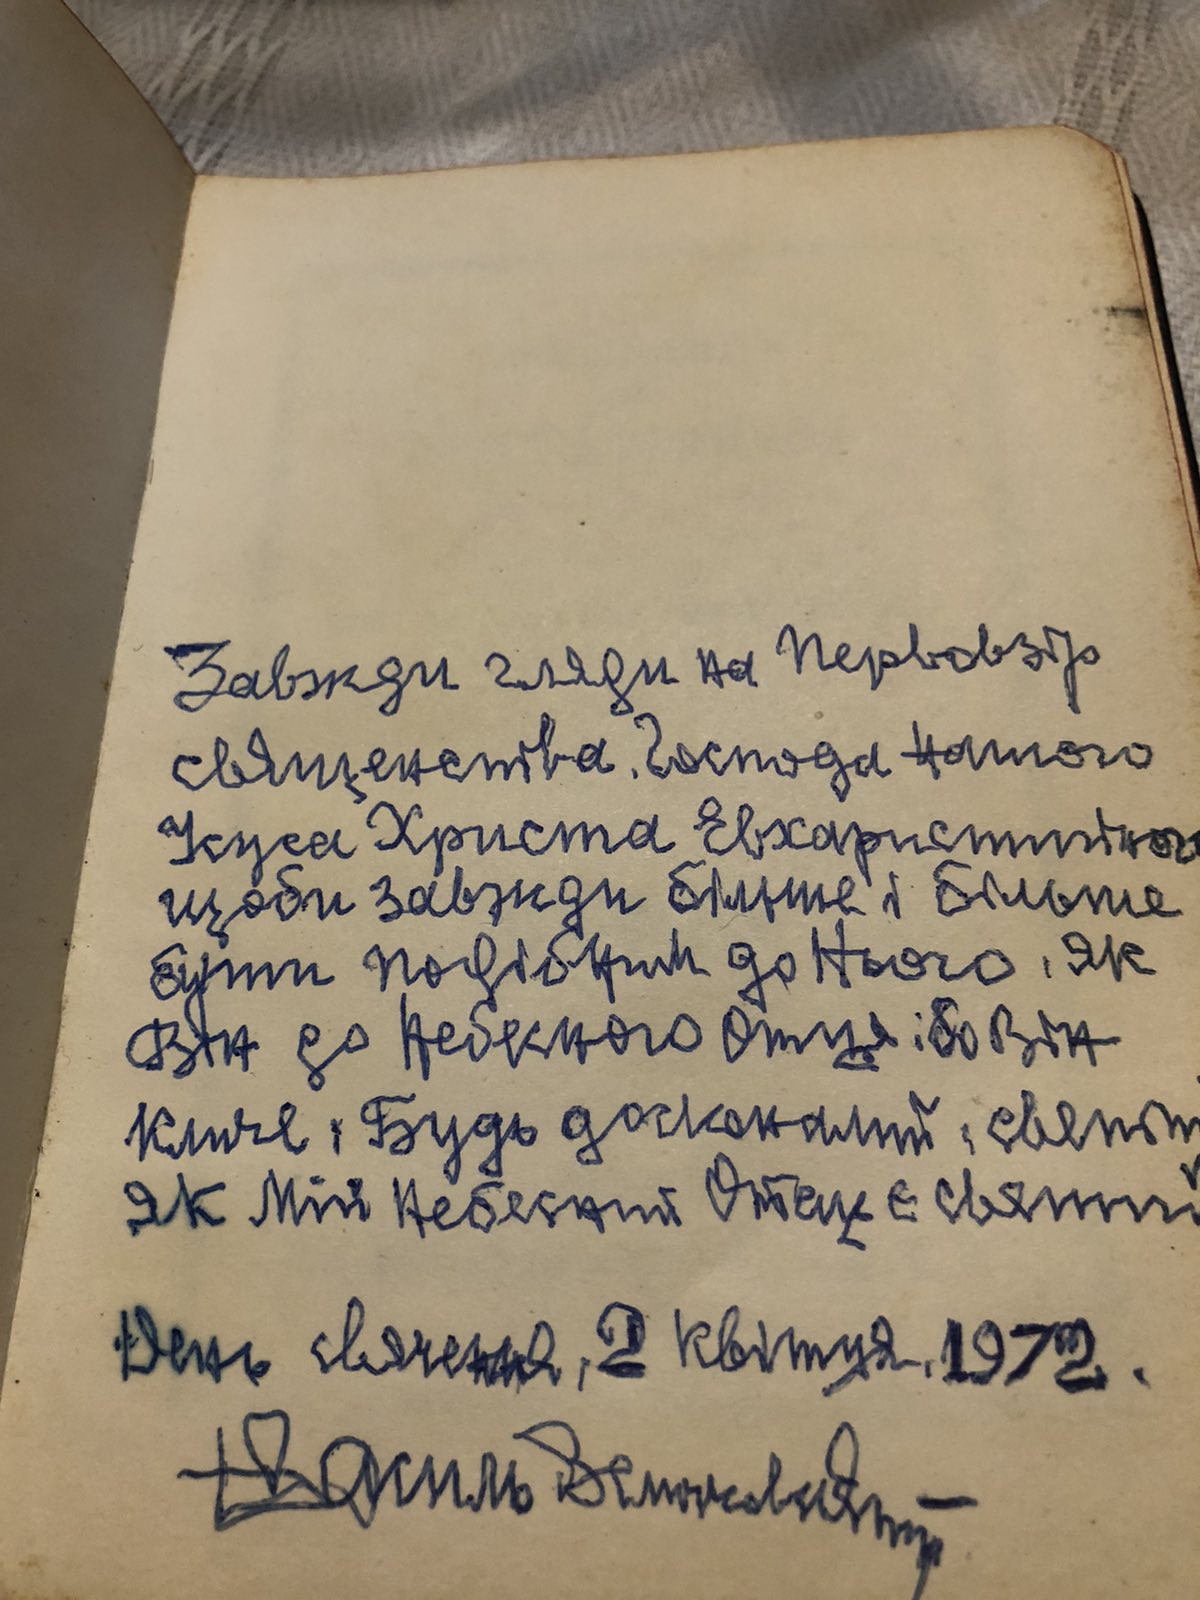 Завжди гляди на Первовзір
священства, Господа нашого
Ісуса Христа Евхаристийного
щоби завжди більше і більше
бути подібним до Нього, як
Він до Небесного Отця; бо Він
кличе; Будь досконалий,
як Мій Небесний Отець є святий
День свячення, 2 квітця, 1972.
+ Василь